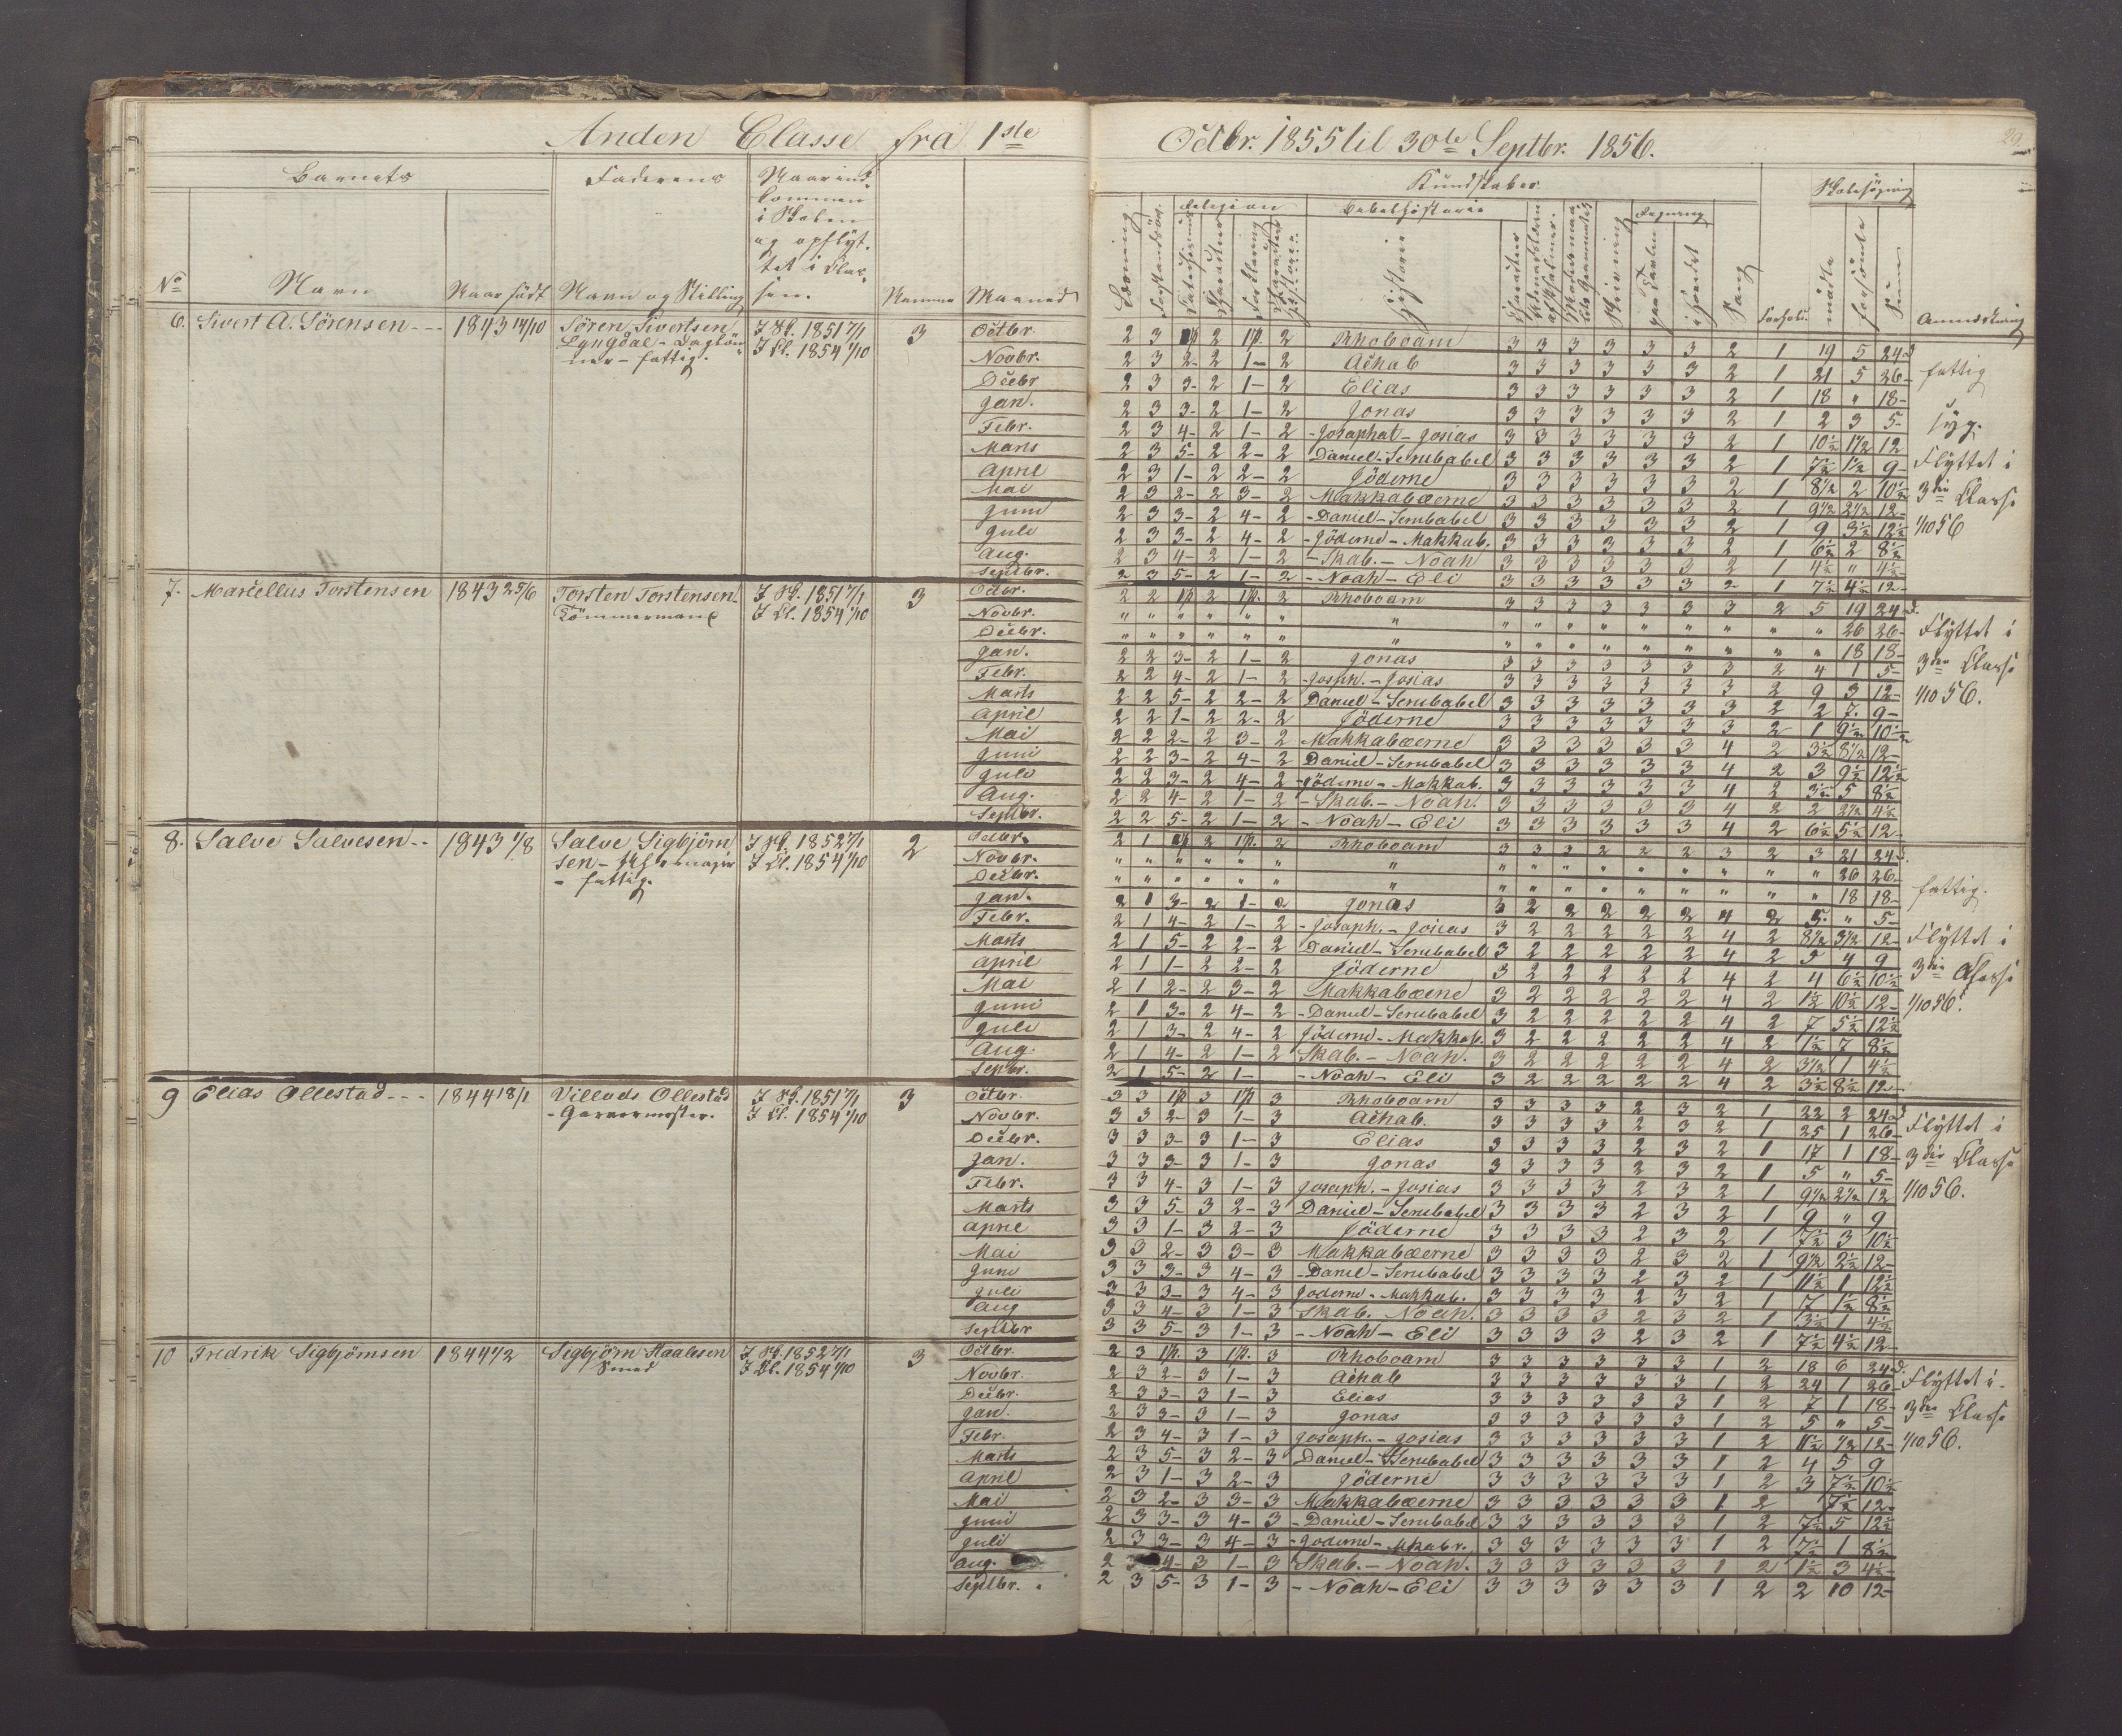 Anden Classe fra 1ste Octbr. 1855 til 30te Septbr. 1856.
29
Barnets Faderens Naar ind-
kommen
i Skolen
og opflyt-
tet i Clas-
sen.
No Navn Naar födt Navn og Stilling Nummer Maaned
Kundskaber Skolesøgning
Religion Bibelhistorie Regning
Læsning Historier Skrivning i Hovedet Sang Forhold mødte forsömte Sum Anmærkning
6. Sivert A. Sörensen 1843 14/10 Sören Sivertsen I Sk. 1851 7/1 3
Lyngdal - Daglön- I Cl. 1854 1/10
ner - fattig.
Octbr. 2 3 2 2 Rhoboam 3 3 3 3 3 3 2 1 19 5 24 fattig
Novbr. 2 3 2- 2 1- 2 Achab 3 3 3 3 3 3 2 1 21 5 26-
Decbr 2 3 3- 2 1- 2 Elias 3 3 3 3 3 3 2 1 18 " 18-
Jan. 2 3 3- 2 1- 2 Jonas 3 3 3 3 3 3 2 1 2 3 5- syg.
Febr. 2 3 4- 2 1- 2 - Josaphat - Josias 3 3 3 3 3 3 2 1 10½ 1½ 12
Marts 2 3 5- 2 2- 2 Daniel - Serubabel 3 3 3 3 3 3 2 1 7½ 1½ 9- Flyttet i
April 2 3 1- 2 2- 2 Jöderne 3 3 3 3 3 3 2 1 8½ 2 10½ 3die Classe
Mai 2 3 2- 2 3- 2 Makkabæerne 3 3 3 3 3 3 2 1 9½ 2½ 12- 1/10 56
Juni 2 3 3- 2 4- 2 - Daniel - Serubabel 3 3 3 3 3 3 2 1 9 3½ 12½
Juli 2 3 3- 2 4- 2 - Jöderne - Makkab. 3 3 3 3 3 3 2 1 6½ 2 8½
Aug. 2 3 4- 2 1- 2 - Skab. - Noah 3 3 3 3 3 3 2 1 4½ " 4½
Septbr. 2 3 5- 2 1- 2 - Noah - Eli 3 3 3 3 3 3 2 1 7½ 4½ 12-
7. Marcellus Torstensen 1843 25/6 Torsten Torstensen I Sk. 1851 7/1 3
Tömmermand I Cl. 1854 1/10
Octbr. 2 2 2 2 Rhoboam 3 3 3 3 3 3 3 2 5 19 24
Novbr. " " " " " " " " " " " " " " " " 26 26- Flyttet i
Decbr. " " " " " " " " " " " " " " " " 18 18-
Jan. 2 2 3- 2 1- 2 Jonas 3 3 3 3 3 3 3 2 4 1 5- 3die Classe
Febr. 2 2 4- 2 1- 2 - Josaph. - Josias 3 3 3 3 3 3 3 2 9 3 12-
Marts 2 2 5- 2 2- 2 Daniel - Serubabel 3 3 3 3 3 3 3 2 2 7 9- 1/10 56.
April 2 2 1- 2 2- 2 Jöderne 3 3 3 3 3 3 3 2 1 9½ 10½
Mai 2 2 2- 2 3- 2 Makkabæerne 3 3 3 3 3 3 4 2 3½ 8½ 12-
Juni 2 2 3- 2 4- 2 Daniel - Serubabel 3 3 3 3 3 3 4 2 3 9½ 12½
Juli 2 2 3- 2 4- 2 - Jöderne - Makkab. 3 3 3 3 3 3 4 2 3½ 5 8½
Aug. 2 2 4- 2 1- 2 - Skab. - Noah. 3 3 3 3 3 3 4 2 2 2½ 4½
Septbr. 2 2 5- 2 1- 2 - Noah - Eli 3 3 3 3 3 3 4 2 6½ 5½ 12-
8. Salve Salvesen 1843 1/8 Salve Sigbjörn I Sk. 1852 7/1 2
sen - I Cl. 1854 1/10
- fattig.
Octbr. 2 1 2 2 Rhoboam 3 3 3 2 2 2 3 2 3 21 24
Novbr. " " " " " " " " " " " " " " " " 26 26-
Decbr. " " " " " " " " " " " " " " " " 18 18- fattig.
Jan. 2 1 3- 2 1- 2 Jonas 3 2 2 2 2 2 4 2 5 " 5-
Febr. 2 1 4- 2 1- 2 - Josaph. - Josias 3 2 2 2 2 2 4 2 8½ 3½ 12- Flyttet i
Marts 2 1 5- 2 2- 2 Daniel - Serubabel 3 2 2 2 2 2 4 2 5 4 9
April 2 1 1- 2 2- 2 Jöderne 3 2 2 2 2 2 4 2 4 6½ 10½ 3die Classe
Mai 2 1 2- 2 3- 2 Makkabæerne 3 2 2 2 2 2 4 2 1½ 10½ 12-
Juni 2 1 3- 2 4- 2 - Daniel - Serubabel 3 2 2 2 2 2 4 2 7 5½ 12½ 1/10 56.
Juli 2 1 3- 2 4- 2 Jöderne - Makkab. 3 2 2 2 2 2 4 2 1½ 7 8½
Aug. 2 1 4- 2 1- 2 Skab. - Noah. 3 2 2 2 2 2 4 2 3½ 1 4½
Septbr. 2 1 5- 2 1- - Noah - Eli 3 2 2 2 2 2 4 2 3½ 8½ 12-
9 Elias Ollestad 1844 18/1 Villads Ollestad I Sk. 1851 7/1 3
- Garvermester. I Cl. 1854 1/10
Octbr. 3 3 3 3 Rhoboam 3 3 3 3 2 3 2 1 22 2 24
Novbr. 3 3 2- 3 1- 3 Achab. 3 3 3 3 2 3 2 1 25 1 26- Flyttet i
Decbr. 3 3 3- 3 1- 3 Elias 3 3 3 3 2 3 2 1 17 1 18- 3die Classe
Jan. 3 3 3- 3 1- 3 Jonas 3 3 3 3 2 3 2 1 5 " 5-
Febr. 3 3 4- 3 1- 3 Josaph. - Josias 3 3 3 3 2 3 2 1 9½ 2½ 12 1/10 56.
Marts 3 3 5- 3 2- 3 Daniel - Serubabel 3 3 3 3 2 3 2 1 9 " 9
April 3 3 1- 3 2- 3 Jöderne 3 3 3 3 2 3 2 1 7½ 3 10½
Mai 3 3 2- 3 3- 3 Makkabæerne 3 3 3 3 2 3 2 1 9½ 2½ 12-
Juni 3 3 3- 3 4- 3 - Daniel - Serubabel 3 3 3 3 2 3 2 1 11½ 1 12½
Juli 3 3 3- 3 4- 3 Jöderne - Makkab. 3 3 3 3 2 3 2 1 7 1½ 8½
Aug 3 3 4- 3 1- 3 Skab. Noah. 3 3 3 3 2 3 2 1 3½ 1 4½
Septbr 3 3 5- 3 1- 3 - Noah - Eli 3 3 3 3 2 3 2 1 7½ 4½ 12-
10 Fredrik Sigbjörnsen 1844 1/2 Sigbjörn Haalesen I Sk. 1852 7/1 3
Smed I Cl. 1854 1/10
Octbr. 2 3 3 3 Rhoboam 3 3 3 3 3 3 1 2 18 6 24
Novbr. 2 3 2- 3 1- 3 Achab 3 3 3 3 3 3 1 2 24 1 26- Flyttet i
Decbr. 2 3 3- 3 1- 3 Elias 3 3 3 3 3 3 1 2 7 1 18-
Jan. 2 3 3- 3 1- 3 Jonas 3 3 3 3 3 3 1 2 5 " 5- 3die Classe
Febr. 2 3 4- 3 1- 3 Josaph. - Josias 3 3 3 3 3 3 1 2 11½ ½ 12- 1/10 56.
Marts 2 3 5- 3 2- 3 Daniel - Serubabel 3 3 3 3 3 3 1 2 4 5 9
April 2 3 1- 3 2- 3 Jöderne 3 3 3 3 3 3 1 2 3 7½ 10½
Mai 2 3 2- 3 3- 3 Makkabæerne 3 3 3 3 3 3 1 2 7½ 12-
Juni 2 3 3- 3 4- 3 - Daniel - Serubabel 3 3 3 3 3 3 1 2 7½ 5 12½
Juli 2 3 3- 3 4- 3 - Joderne - Mkabr. 3 3 3 3 3 3 1 2 7½ 1 8½
Aug. 2 3 4- 3 1- 3 Skab. - Noah. 3 3 3 3 3 3 1 2 1½ 3 4½
Septbr. 2 3 5- 3 1- 3 - Noah - Eli 3 3 3 3 3 3 1 2 2 10 12-